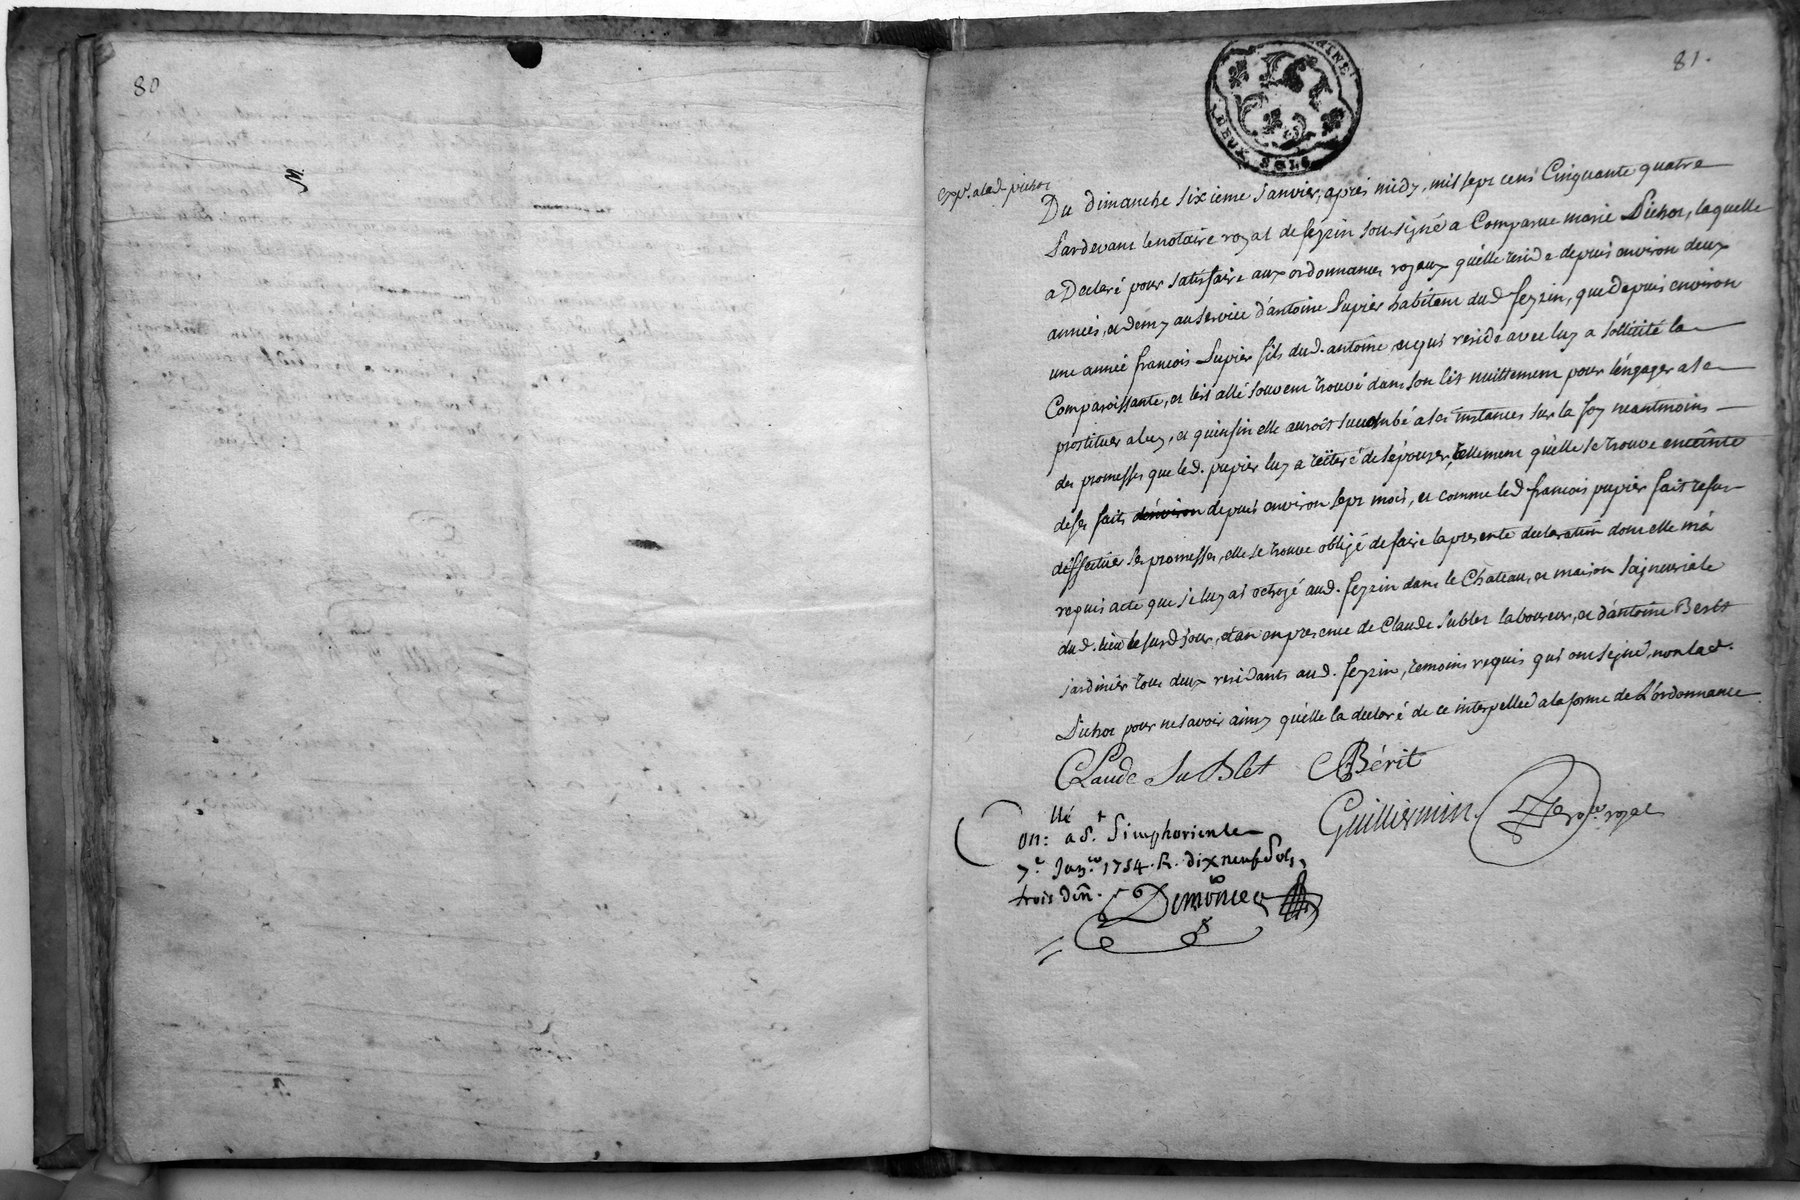 80
81.
DEUX SOLS
exp. a lad. pichot
Du dimanche sixieme Janvier, apres midy, mil sept cent Cinquante quatre
Pardevant le notaire royal de feyzin soussigné a Comparue marie Pichot, laquelle
a Declaré pour satisfaire aux ordonnances royaux qu'elle reside depuis environ deux
années, et demy au service d'antoine Pupier habitant dud. feyzin, que depuis environ
une année francois Pupier fils dud. antoine, et qui reside avec luy a sollicité la
Comparoissante, et l'est allé souvent trouvé dans son lit nuittement pour l'engager a se
prostituer a luy, et qu'enfin elle auroit succombé a ses instances sur la foy neantmoins
des promesses que led. pupier luy a reiteré de l'épouser, tellement qu'elle se trouve enceinte
de ses faits d'environ depuis environ sept mois, et comme led. francois pupier fait refus
d'effectuer ses promesses, elle se trouve obligé de faire la presente declaration dont elle m'a
requis acte que je luy ai octroyé aud. feyzin dans le Château, et maison seigneuriale
dud. lieu le susd. jour, et an en presence de Claude Sublet laboureur, et d'antoine Berit
jardinier tous deux residants aud. feyzin, temoins requis qui ont signé, non lad.
Pichot pour ne savoir ainsy qu'elle l'a declaré de ce interpellée a la forme de L'ordonnance
Claude SuBlet ABérit
Guilliermin, no.re royal
llé
on: a St. Simphorien le
7.e Janv. 1754. R. dix neuf sols
trois den.